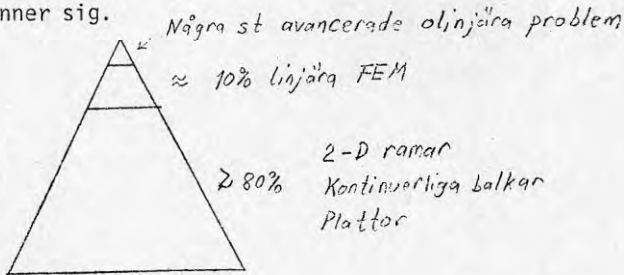 nner sig.
Några st avancerade olinjära problem
≈ 10% linjära FEM
≳ 80%
2-D ramar
Kontinuerliga balkar
Plattor